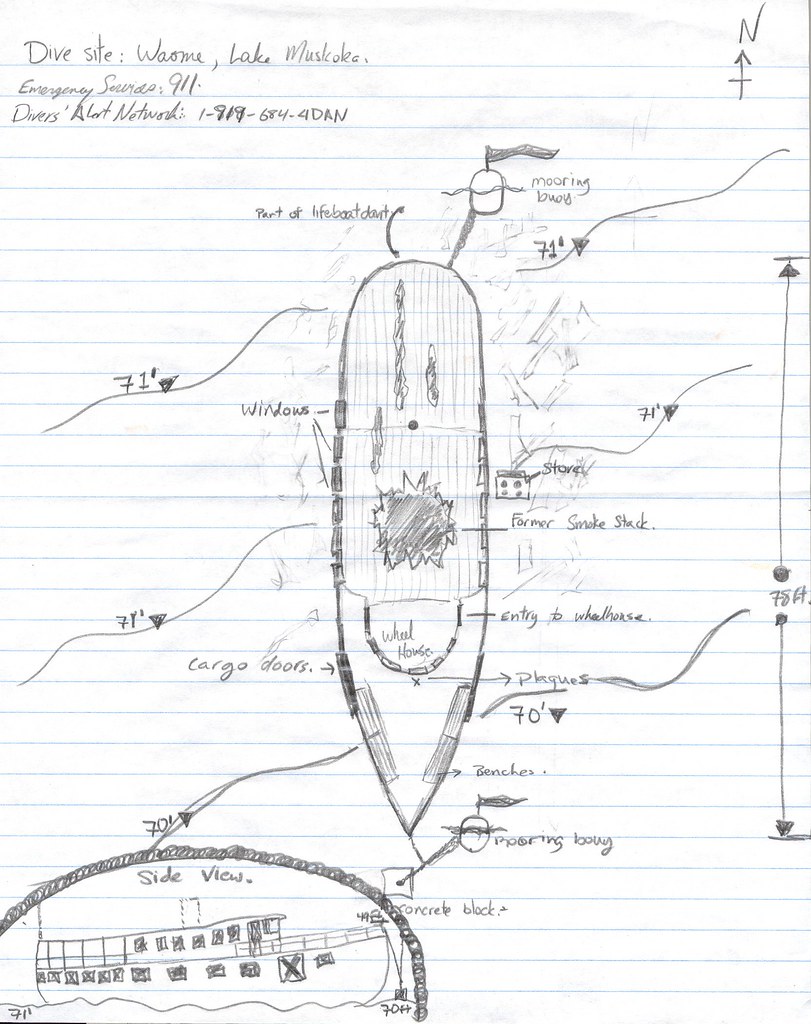 N
Dive site: Waome, Lake Muskoka.
Emergency Services: 911.
Divers' Alert Network: 1-919-684-4DAN
mooring
buoy
Part of lifeboat davit
71'
71'
Windows
71'
Stove
Former Smoke Stack.
78 Ft.
71'
Entry to wheelhouse.
Wheel
House.
Cargo doors.
x
Plaques
70'
Benches.
70'
Mooring bouy
Side View.
49Ft
concrete block.
71'
70Ft